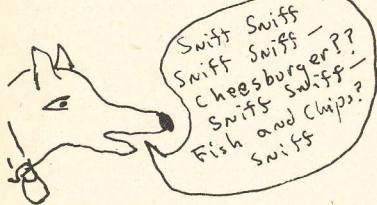 Sniff Sniff
Sniff Sniff—
Cheesburger??
Sniff Sniff—
Fish and Chips?
Sniff